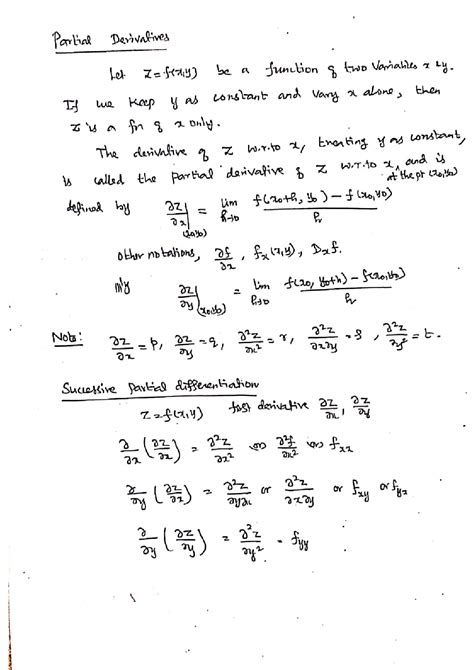 Partial Derivatives
Let z=f(x,y) be a function of two variables x & y.
If we keep y as constant and vary x alone, then
z is a fn of x only.
The derivative of z w.r.to x, treating y as constant,
is called the partial derivative of z w.r.to x, and is
at the pt (x₀,y₀)
defined by ∂z/∂x|(x₀,y₀) = lim h→0 f(x₀+h, y₀) − f(x₀,y₀) / h
other notations, ∂f/∂x, fx(x,y), Dxf.
m'y ∂z/∂y|(x₀,y₀) = lim h→0 f(x₀, y₀+h) − f(x₀,y₀) / h
Note: ∂z/∂x = p, ∂z/∂y = q, ∂²z/∂x² = r, ∂²z/∂x∂y = s, ∂²z/∂y² = t.
Successive partial differentiation
z=f(x,y) first derivative ∂z/∂x, ∂z/∂y
∂/∂x (∂z/∂x) = ∂²z/∂x² or ∂²f/∂x² or fxx
∂/∂y (∂z/∂x) = ∂²z/∂y∂x or ∂²z/∂x∂y or fxy or fyx
∂/∂y (∂z/∂y) = ∂²z/∂y² = fyy